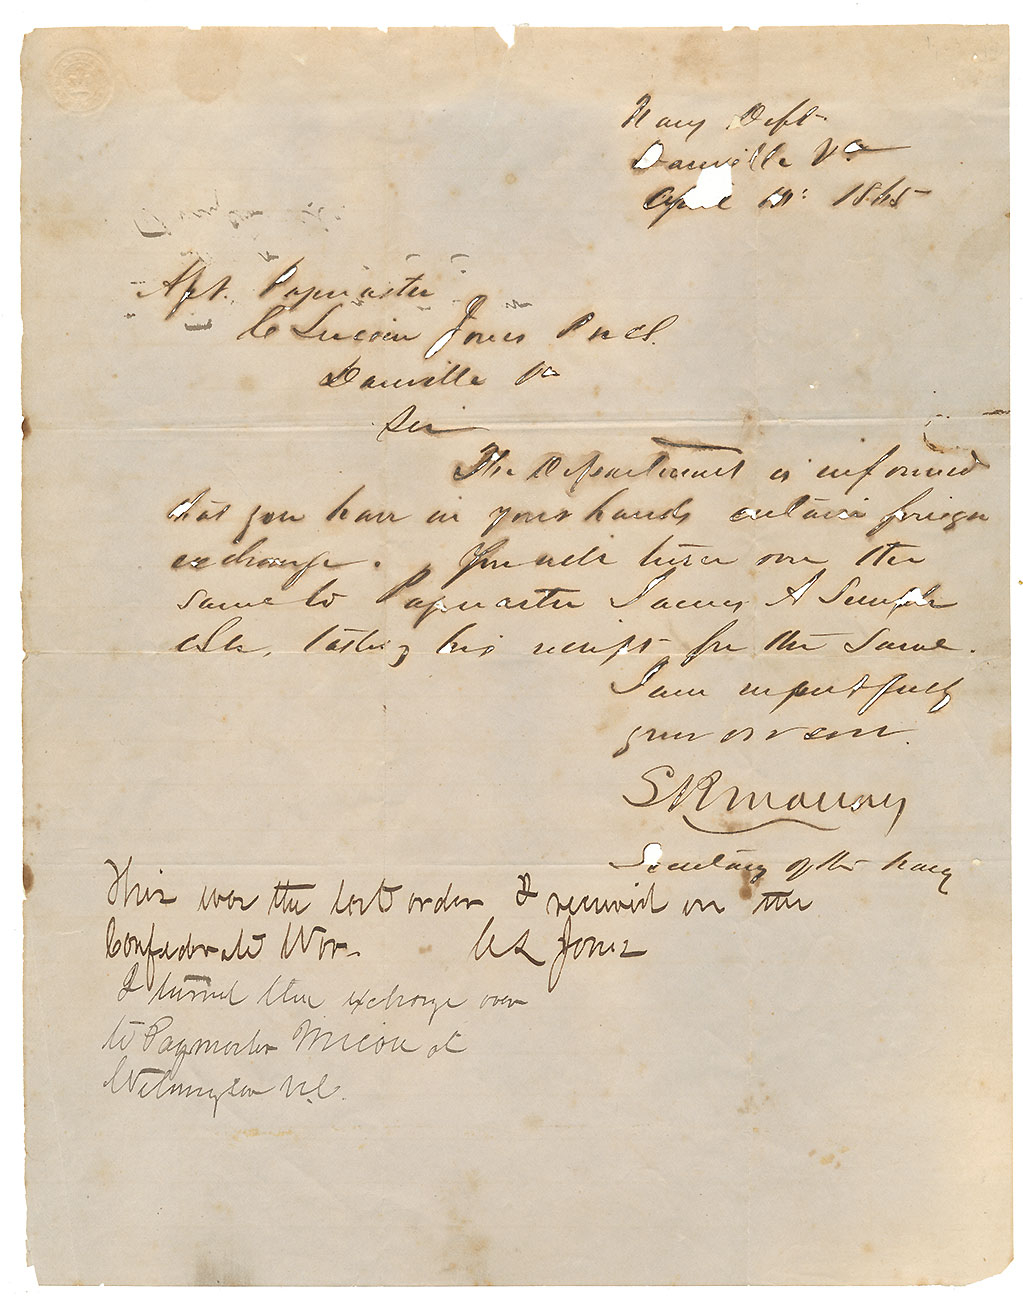 Navy Dept.
Danville Va
April 1865
Asst. Paymaster
C Lucien Jones P.N.C.S.
Danville Va
Sir
The Department is informed
that you have in your hands certain foreign
exchange. You will turn over the
same to Paymaster James A Semple
taking his receipt for the same.
I am respectfully
your obt servt.
S R Mallory
Secretary of the Navy
This was the last order I received in the
Confederate War. C L Jones
I turned this exchange over
to Paymaster Micou at
Wilmington N.C.